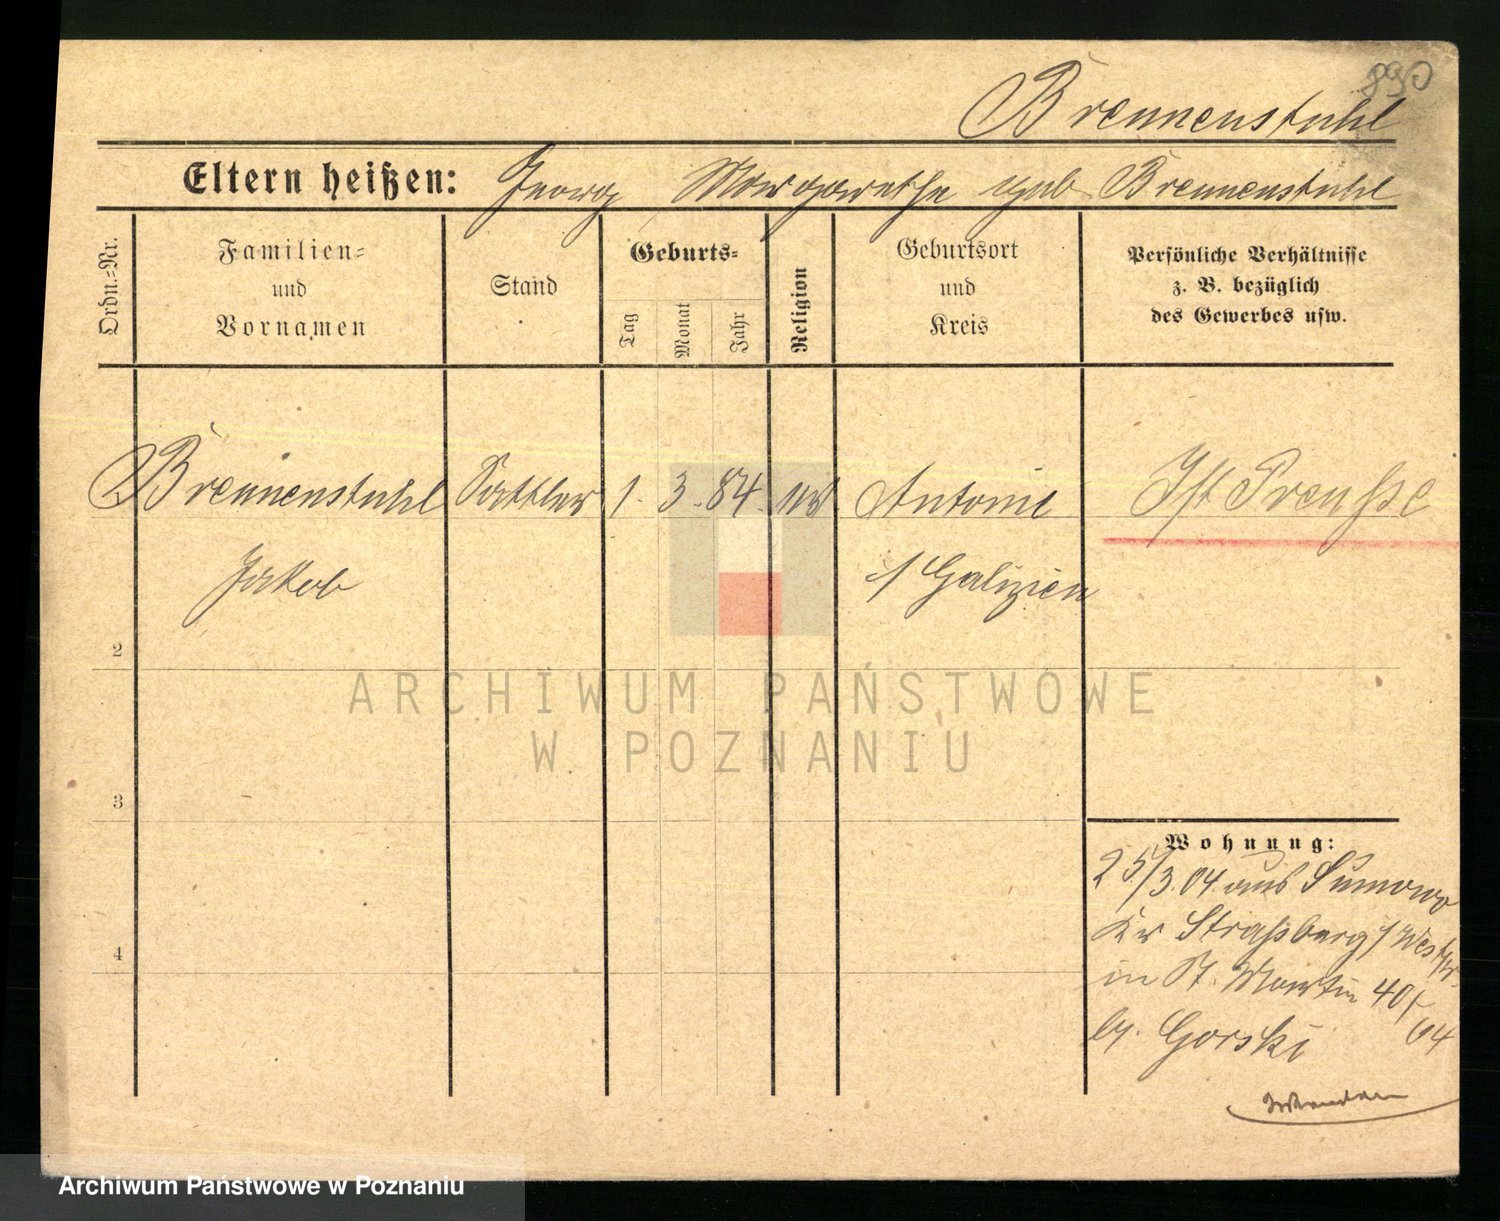 890
Brennenstuhl
Eltern heißen: Georg Margarethe geb Brennenstuhl
Ordn.-Nr.
Familien-
und
Vornamen
Stand
Geburts-
Tag
Monat
Jahr
Religion
Geburtsort
und
Kreis
Persönliche Verhältnisse
z. B. bezüglich
des Gewerbes usw.
Brennenstuhl Sattler 1. 3. 84. Antonie Ist Preuße
Jakob / Galizien
2
3
4
Wohnung:
25/3.04. aus Sumowo
Kr Straßburg / Westpr.
in St. Martin 40/
by. Gorski 04
ARCHIWUM PAŃSTWOWE
W POZNANIU
Archiwum Państwowe w Poznaniu